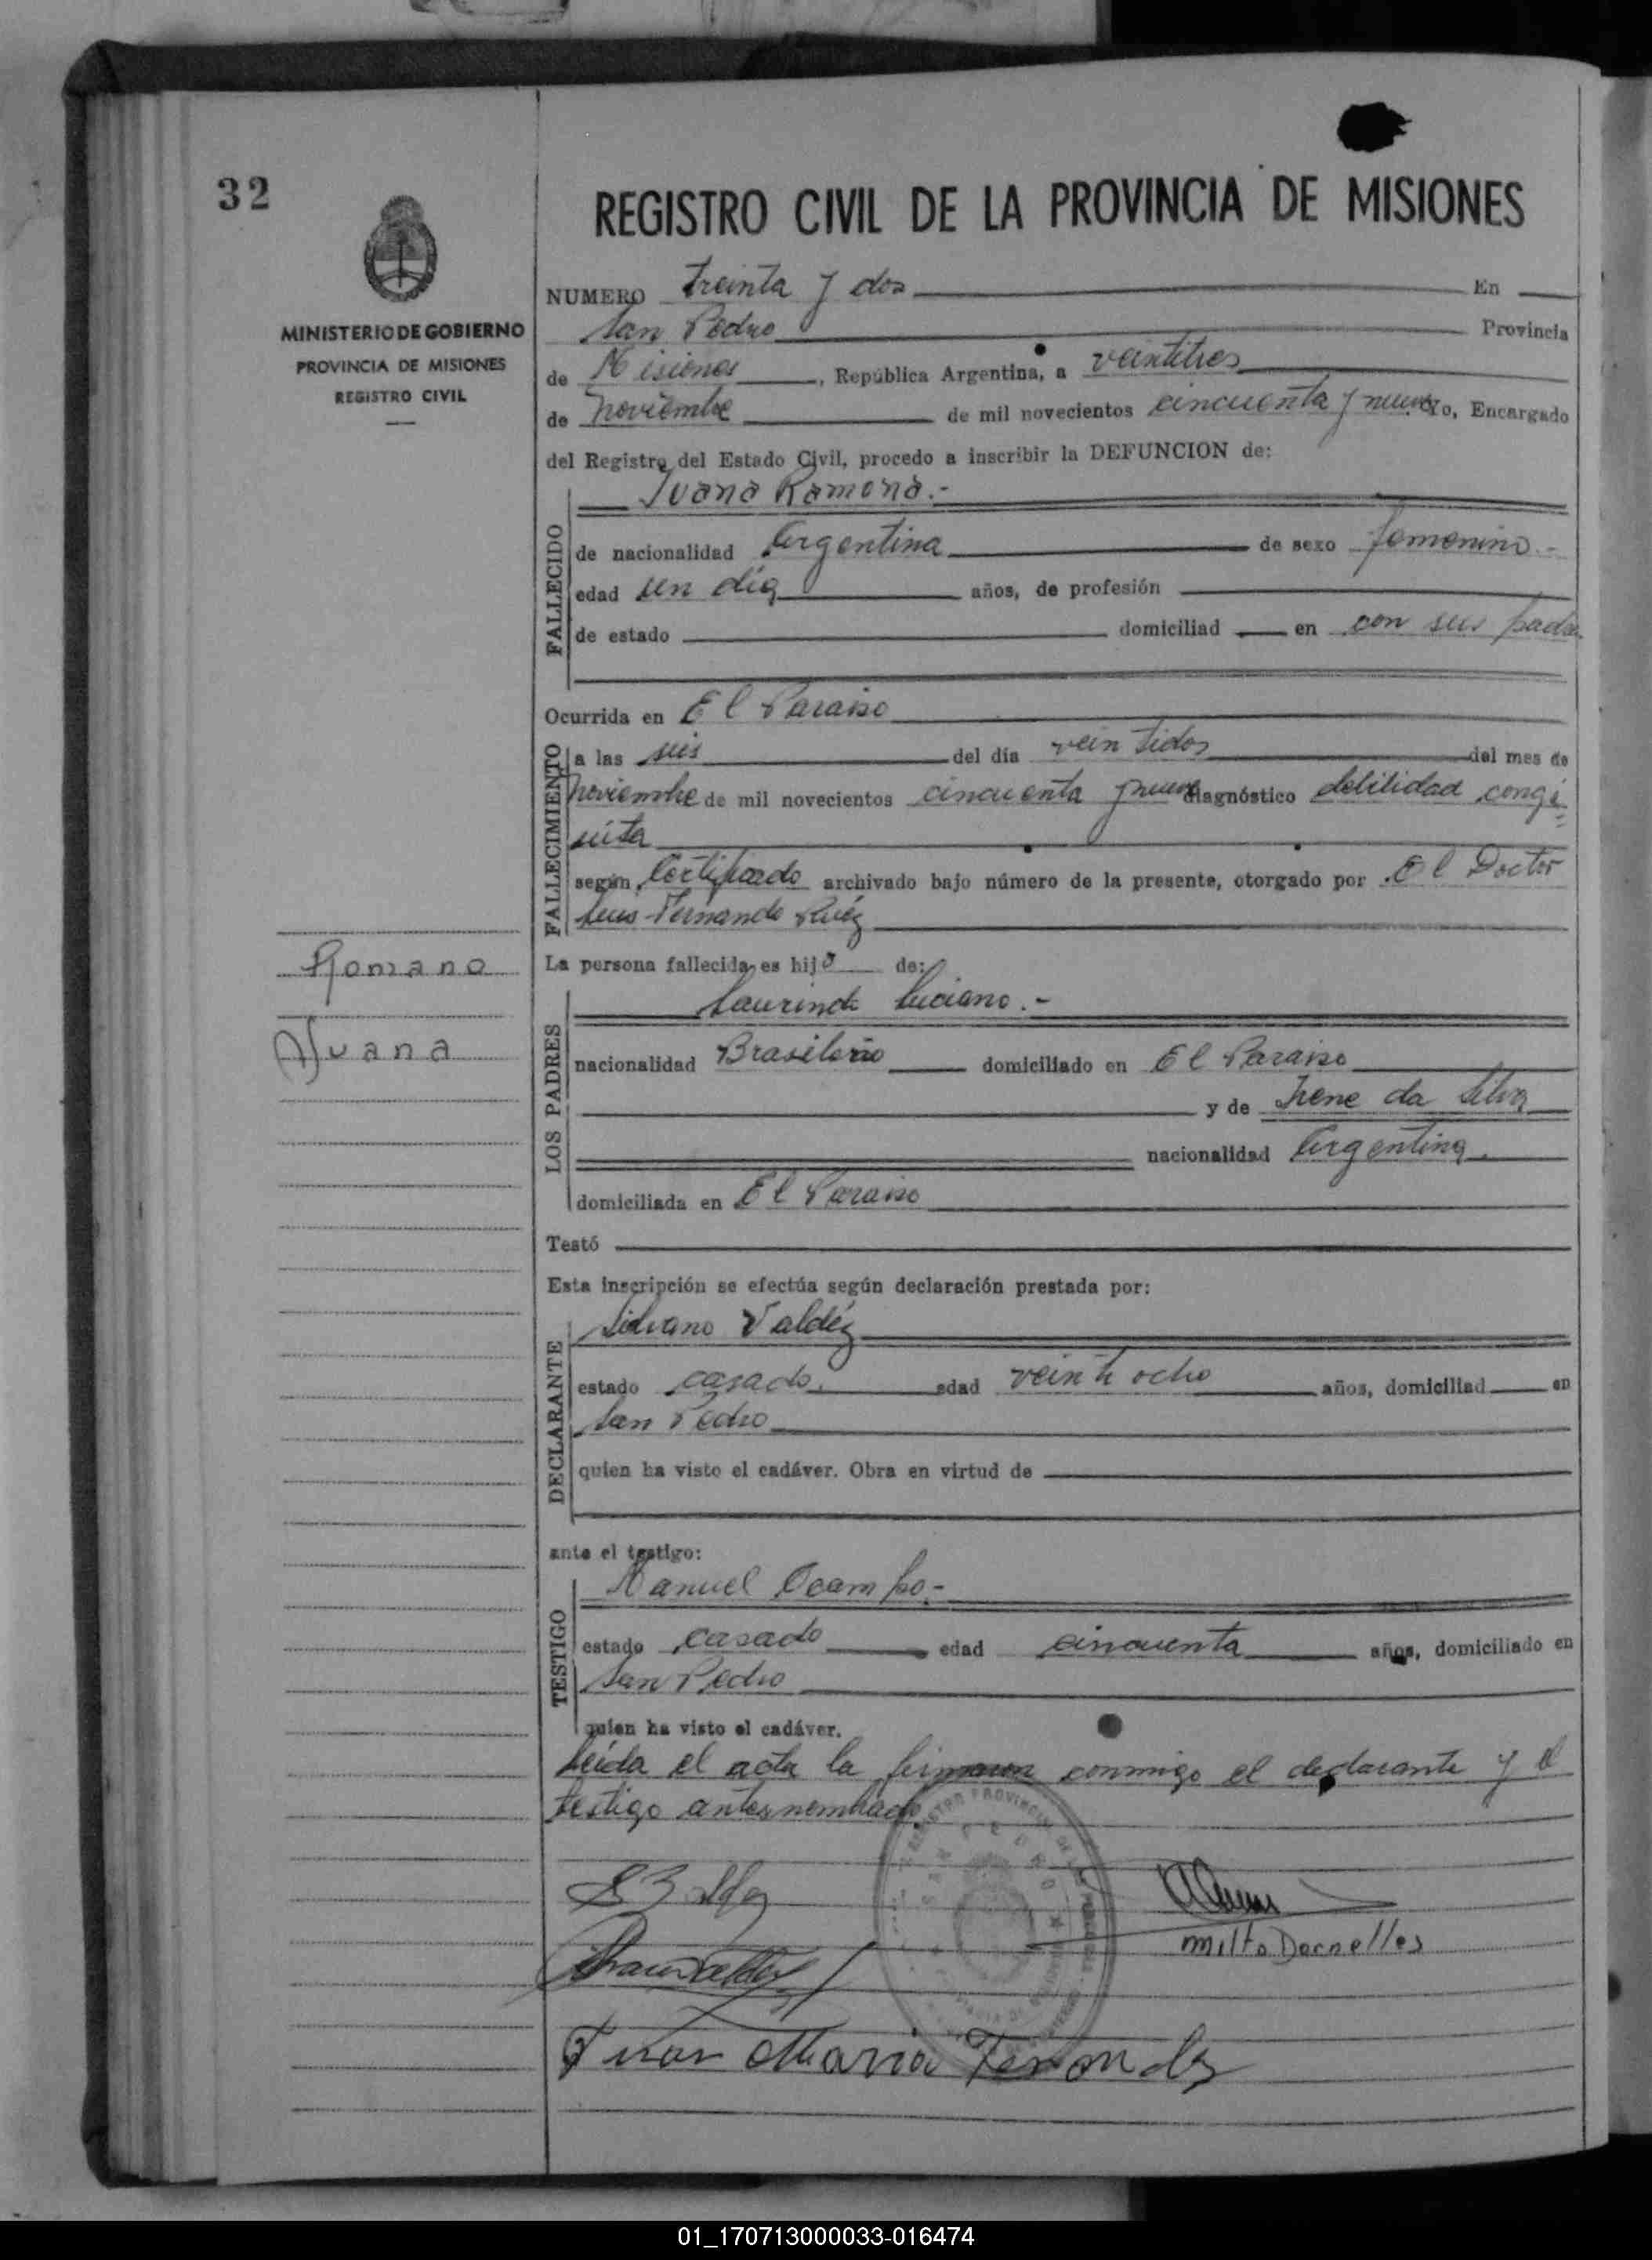 32
MINISTERIO DE GOBIERNO
PROVINCIA DE MISIONES
REGISTRO CIVIL
REGISTRO CIVIL DE LA PROVINCIA DE MISIONES
NUMERO treinta y dos En
San Pedro Provincia
de Misiones, República Argentina, a veintitres
de noviembre de mil novecientos cincuenta y nueve yo, Encargado
del Registro del Estado Civil, procedo a inscribir la DEFUNCION de:
Juana Ramona.-
FALLECIDO
de nacionalidad Argentina de sexo femenino.-
edad un día años, de profesión
de estado domiciliad en con sus padres
Ocurrida en El Paraiso
FALLECIMIENTO
a las seis del día veintidos del mes de
noviembre de mil novecientos cincuenta y nueve diagnóstico debilidad congé
nita
según Certificado archivado bajo número de la presente, otorgado por El Doctor
Luis Fernando Ruíz
La persona fallecida es hija de:
Romano
Juana
LOS PADRES
Laurindo Luciano.-
nacionalidad Brasileño domiciliado en El Paraiso
y de Irene da Silva
nacionalidad Argentina.
domiciliada en El Paraiso
Testó
Esta inscripción se efectúa según declaración prestada por:
DECLARANTE
Silvano Valdéz
estado casado. edad veintiocho años, domiciliad en
San Pedro
quien ha visto el cadáver. Obra en virtud de
ante el testigo:
TESTIGO
Manuel Ocampo.-
estado casado edad cincuenta años, domiciliado en
San Pedro
quien ha visto el cadáver.
Leída el acta la firmaron conmigo el declarante y el
testigo antesnombrado.
SAN PEDRO
milto Dornelles
Juan Maria Fernandez
01_170713000033-016474